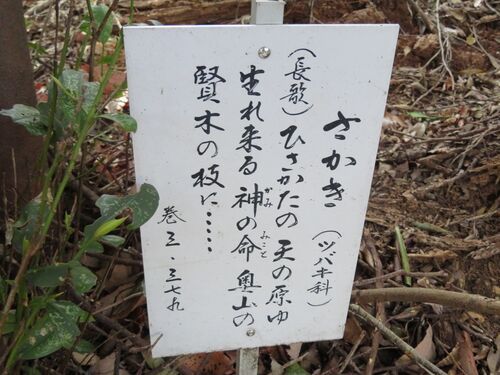 さかき（ツバキ科）
（長歌）ひさかたの天の原ゆ
生れ来る神の命奥山の
がみ
みこと
賢木の枝に……
巻三・三七九